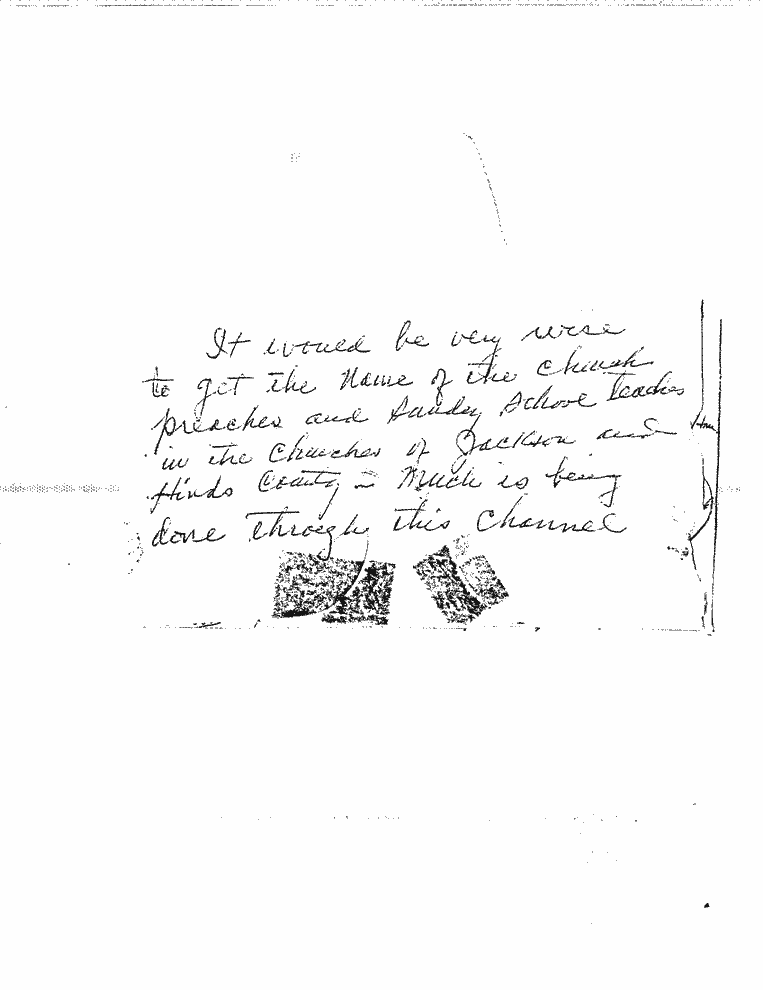 It would be very wise
to get the Name of the church
preaches and Sunday School leaders
in the Churches of Jackson and
Hinds County – Much is being
done through this Channel